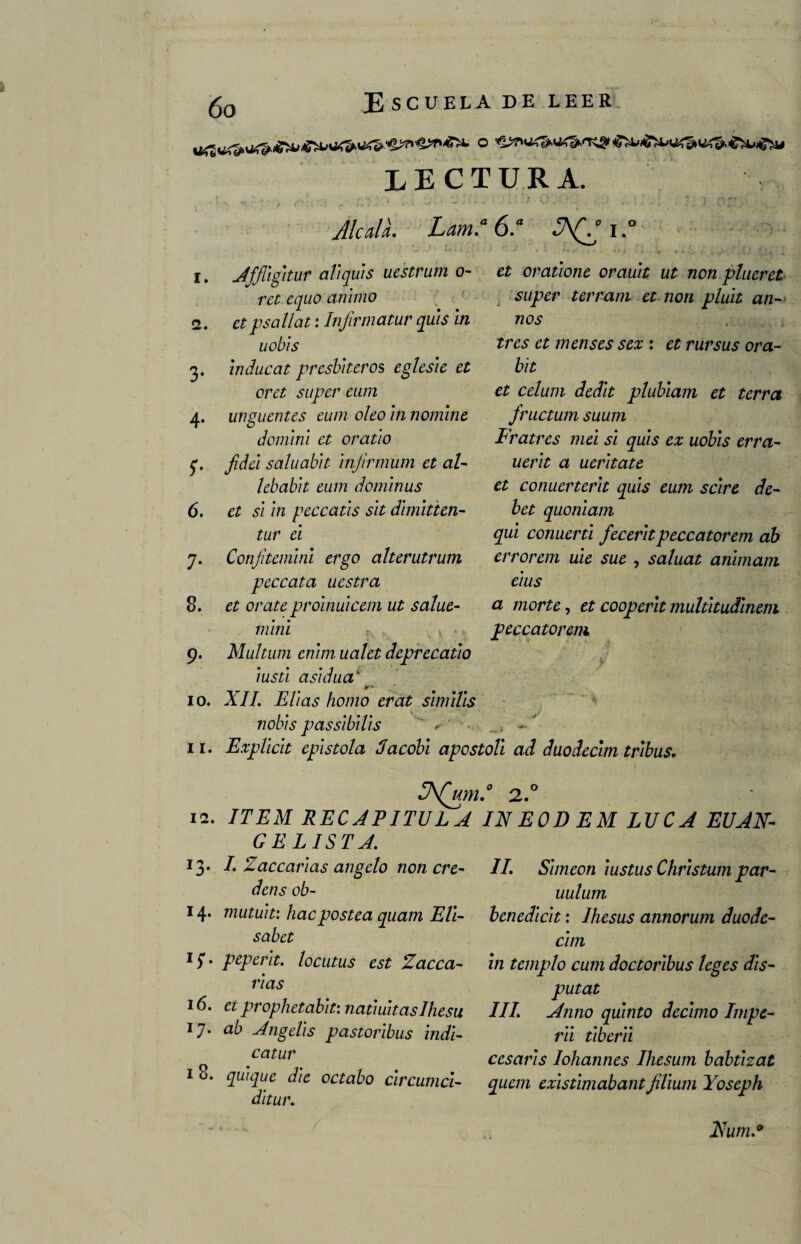 60
ESCUELA DE LEER
LECTURA.
Alcalá. Lam.ª 6.ª N.º 1.º
1. Affligitur aliquis uestrum o-
ret equo animo
2. et psallat: Infirmatur quis in
uobis
3. inducat presbiteros eglesie et
oret super eum
4. unguentes eum oleo in nomine
domini et oratio
5. fidei saluabit infirmum et al-
lebabit eum dominus
6. et si in peccatis sit dimitten-
tur ei
7. Confitemini ergo alterutrum
peccata uestra
8. et orate proinuicem ut salue-
mini
9. Multum enim ualet deprecatio
iusti asidua
10. XII. Elias homo erat similis
nobis passibilis
et oratione orauit ut non plueret
super terram et non pluit an-
nos
tres et menses sex : et rursus ora-
bit
et celum dedit plubiam et terra
fructum suum
Fratres mei si quis ex uobis erra-
uerit a ueritate
et conuerterit quis eum scire de-
bet quoniam
qui conuerti fecerit peccatorem ab
errorem uie sue , saluat animam
eius
a morte, et cooperit multitudinem
peccatorem
11. Explicit epistola Jacobi apostoli ad duodecim tribus.
Num.º 2.º
12. ITEM RECAPITULA IN EODEM LUCA EUAN-
GELISTA.
13. I. Zaccarias angelo non cre-
dens ob-
14. mutuit: hac postea quam Eli-
sabet
15. peperit. locutus est Zacca-
rias
16. et prophetabit: natiuitas Ihesu
17. ab Angelis pastoribus indi-
catur
18. quique die octabo circumci-
ditur.
II. Simeon iustus Christum par-
uulum
benedicit: Ihesus annorum duode-
cim
in templo cum doctoribus leges dis-
putat
III. Anno quinto decimo Impe-
rii tiberii
cesaris Iohannes Ihesum babtizat
quem existimabant filium Yoseph
Num.º